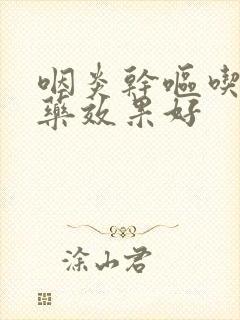 咽炎幹嘔喫
藥效果好
涂山君